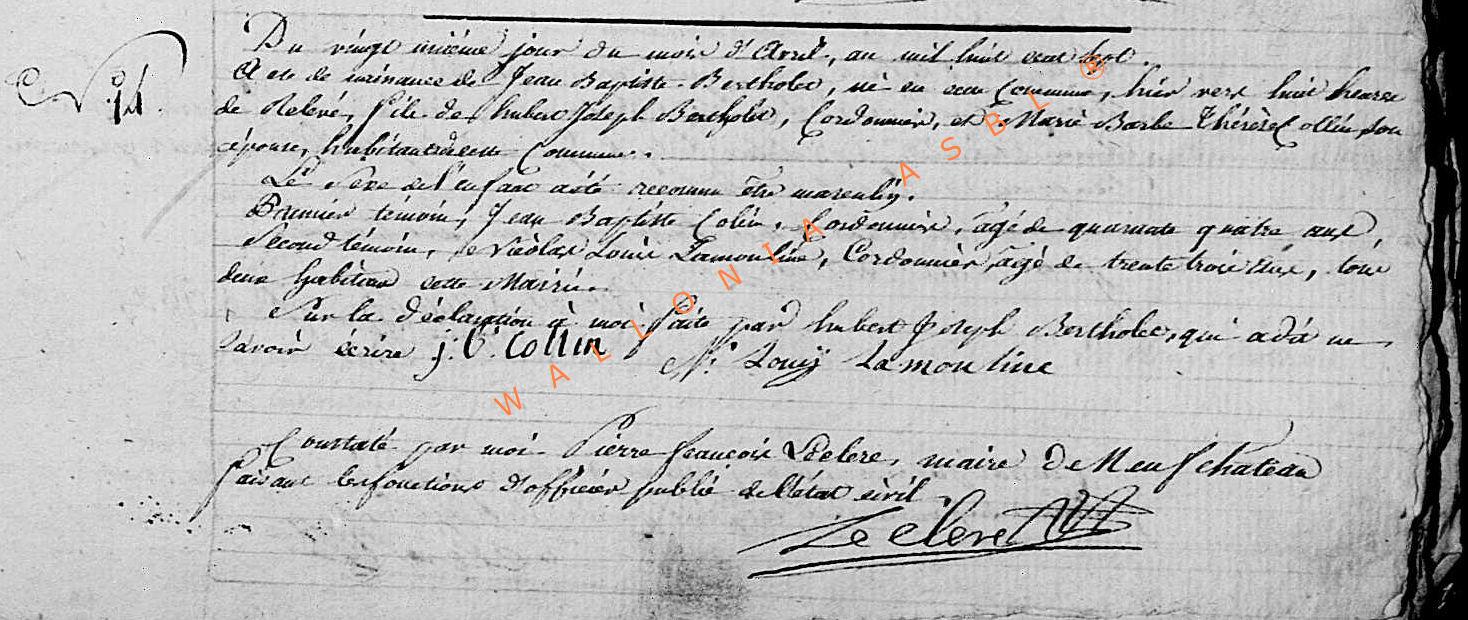 N.° 14.
Du vingt unième jour du mois d'Avril, an mil huit cent sept.
Acte de naissance de Jean Baptiste Bertholet, né en cette Commune, hier vers huit heures
de Relevé, fils de hubert Joseph Bertholet, Cordonnier, et Marie Barbe Thérèse Collin son
épouse, habitants cette Commune.
Le Sexe de l'enfant a été reconnu être masculin.
Premier témoin, Jean Baptiste Colin, Cordonnier, agé de quarante quatre ans,
Second témoin, Nicolas Louis Lamouline, Cordonnier, agé de trente trois ans, tous
deux habitans cette Mairie.
Sur la déclaration à moi faite par hubert Joseph Bertholet, qui a dit ne
savoir écrire j: b. Collin
N: Louis Lamouline
Constaté par moi Pierre françois Leclere, maire de Neufchateau
faisant les fonctions d'officier public de l'état civil
Leclere
WALLONIA ASBL ®